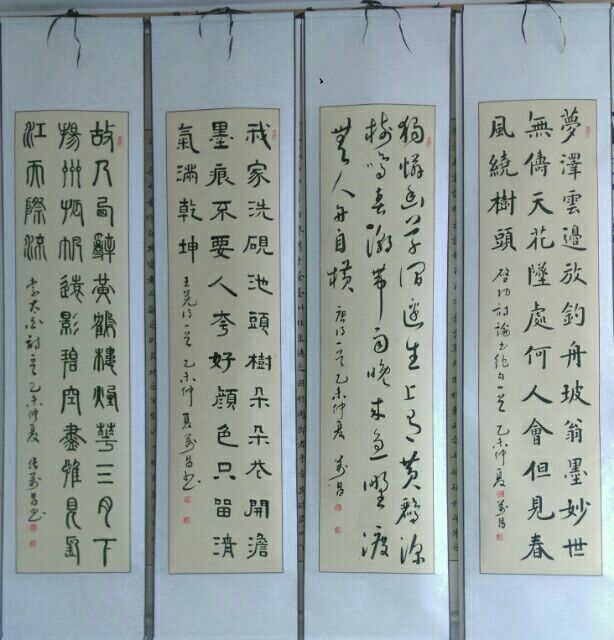 夢澤雲邊放釣舟坡翁墨妙世
無儔天花墜處何人會但見春
風繞樹頭 啓功詩論書絕句一首 乙未仲夏 萬昌
獨憐幽草澗邊生上有黃鸝深
樹鳴春潮帶雨晚來急野渡
無人舟自橫 唐詩一首乙未仲夏 萬昌
我家洗硯池頭樹朵朵花開澹
墨痕不要人夸好顏色只留清
氣滿乾坤 王冕詩一首 乙未仲夏萬昌書
故人西辭黃鶴樓煙華三月下
揚州孤帆遠影碧空盡惟見長
江天際流 李太白詩一首乙未仲夏 張萬昌書